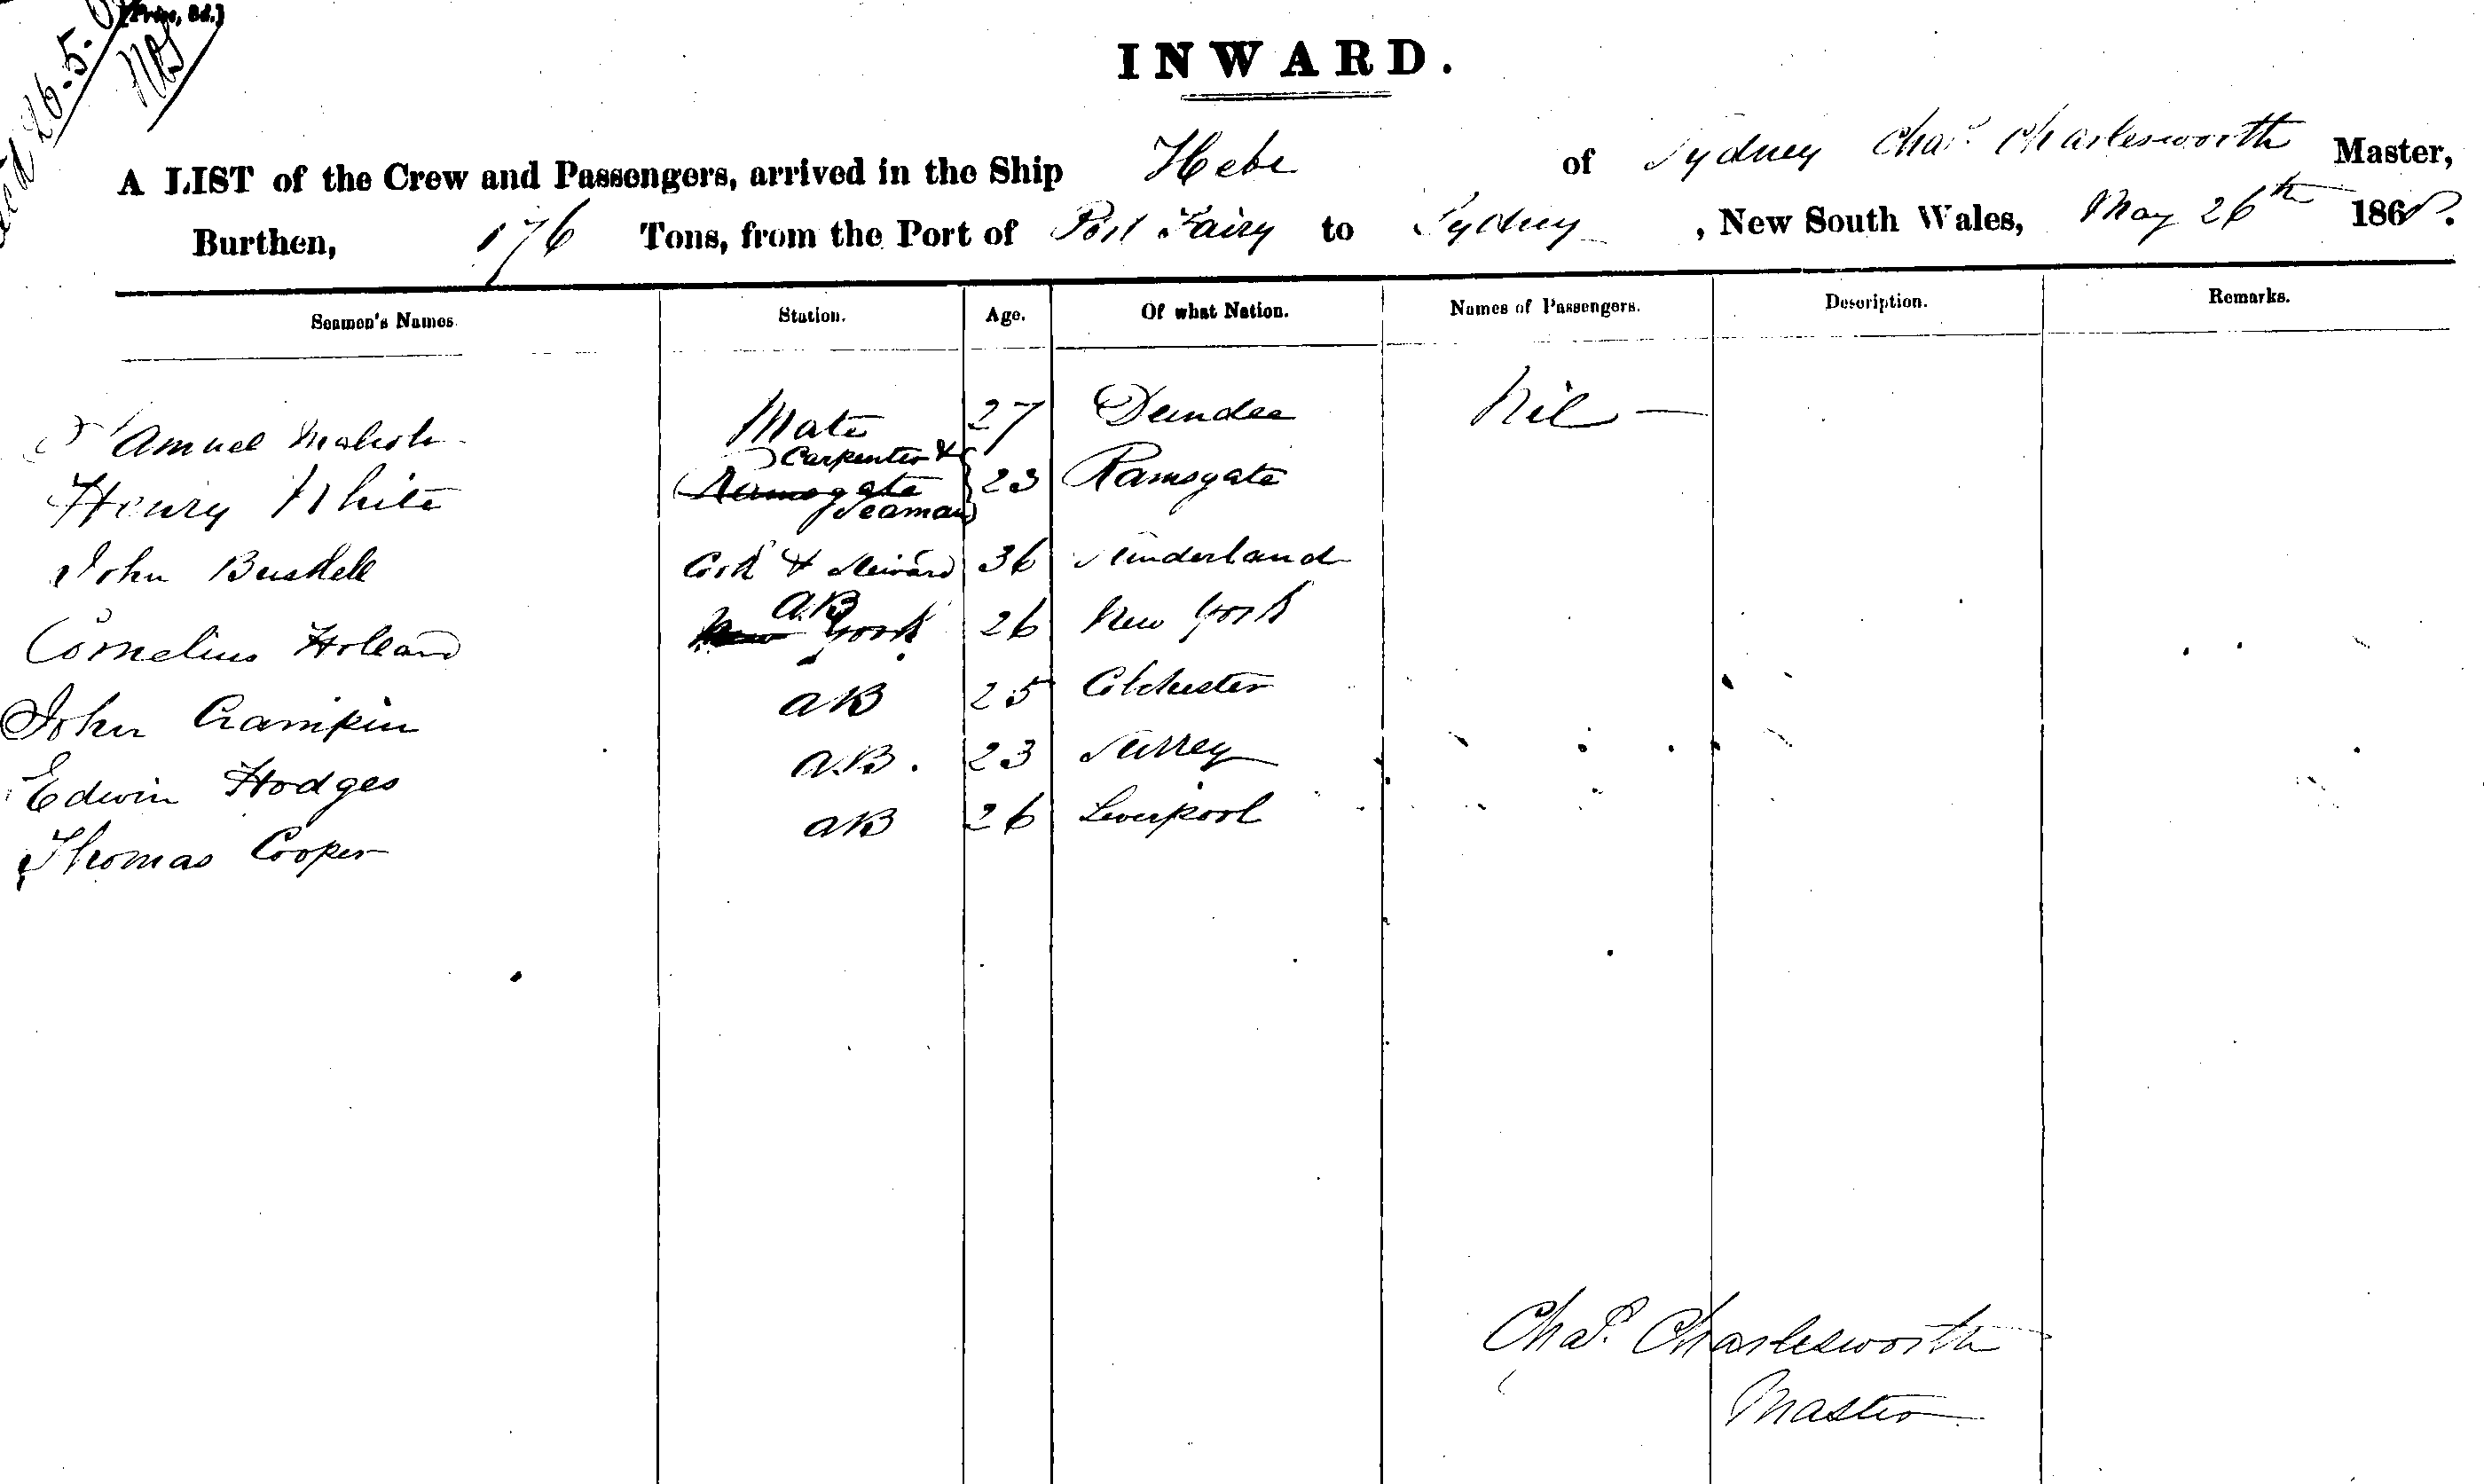 [Price, 8d.]
26.5.
INWARD.
A LIST of the Crew and Passengers, arrived in the Ship Hebe of Sydney Chas. Charlesworth Master,
Burthen, 176 Tons, from the Port of Port Fairy to Sydney, New South Wales, May 26th 1868.
Seamen's Names. Station. Age. Of what Nation. Names of Passengers. Description. Remarks.
Samuel Mate 27 Dundee Nil
Carpenter &
Henry White Ramsgate 23 Ramsgate
Seaman
John Cook & Steward 36 Sunderland
AB
Cornelius Holland New York 26 New York
John Crampin AB 25 Colchester
Edwin Hodges A.B. 23 Surrey
Thomas Cooper AB 26 Liverpool
Chas. Charlesworth
Master